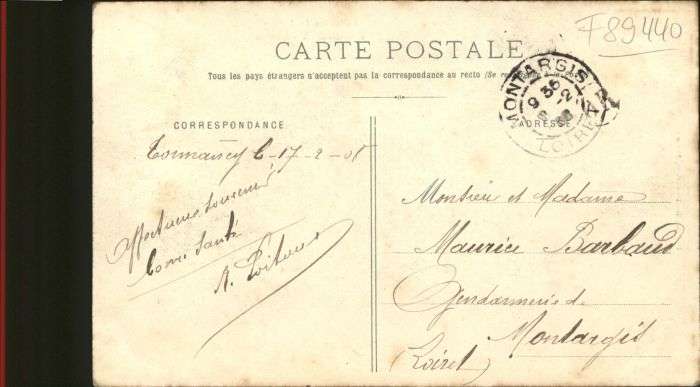 F89440
CARTE POSTALE
Tous les pays étrangers n'acceptent pas la correspondance au recto (Se
MONTARGIS
9 35
LOIRET
CORRESPONDANCE
ADRESSE
17-2-05
affectueux souvenir
bonne santé
Monsieur et Madame
Maurice Barbaud
Gendarmerie de
Montargis
(Loiret)